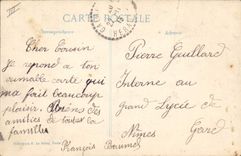 CARTE POSTALE
Correspondance
Adresse
Cher Cousin
Je repond a ton
aimable carte qui
ma fait beaucoup
plaisir.
amities de toute la
famille
François
Pierre Guillard
Interne au
Grand Lycée de
Nîmes
Gard